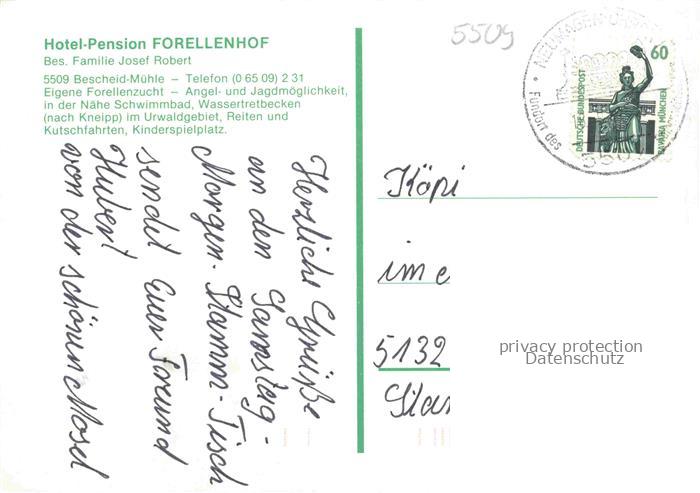 Hotel-Pension FORELLENHOF
Bes. Familie Josef Robert
5509 Bescheid-Mühle – Telefon (0 65 09) 2 31
Eigene Forellenzucht – Angel- und Jagdmöglichkeit,
in der Nähe Schwimmbad, Wassertretbecken
(nach Kneipp) im Urwaldgebiet, Reiten und
Kutschfahrten, Kinderspielplatz.
Herzliche Grüße
an den Samstag-
Morgen-Stamm-Tisch
sendet Euer Freund
Hubert
von der schönen Mosel
5509
60
DEUTSCHE BUNDESPOST
BAVARIA MÜNCHEN
NEUMAGEN-DHRON
Fundort des
Käpi
im
5132
privacy protection
Datenschutz